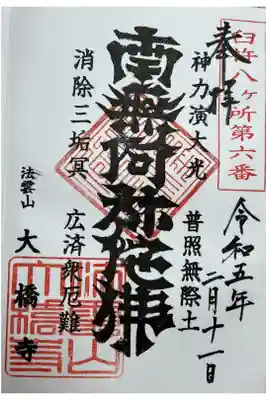 臼杵八ヶ所第六番
奉拝
令和五年
二月十一日
神力演大光
普照無際土
南無阿弥陀佛
消除三垢冥
広済衆厄難
法雲山
大橋寺